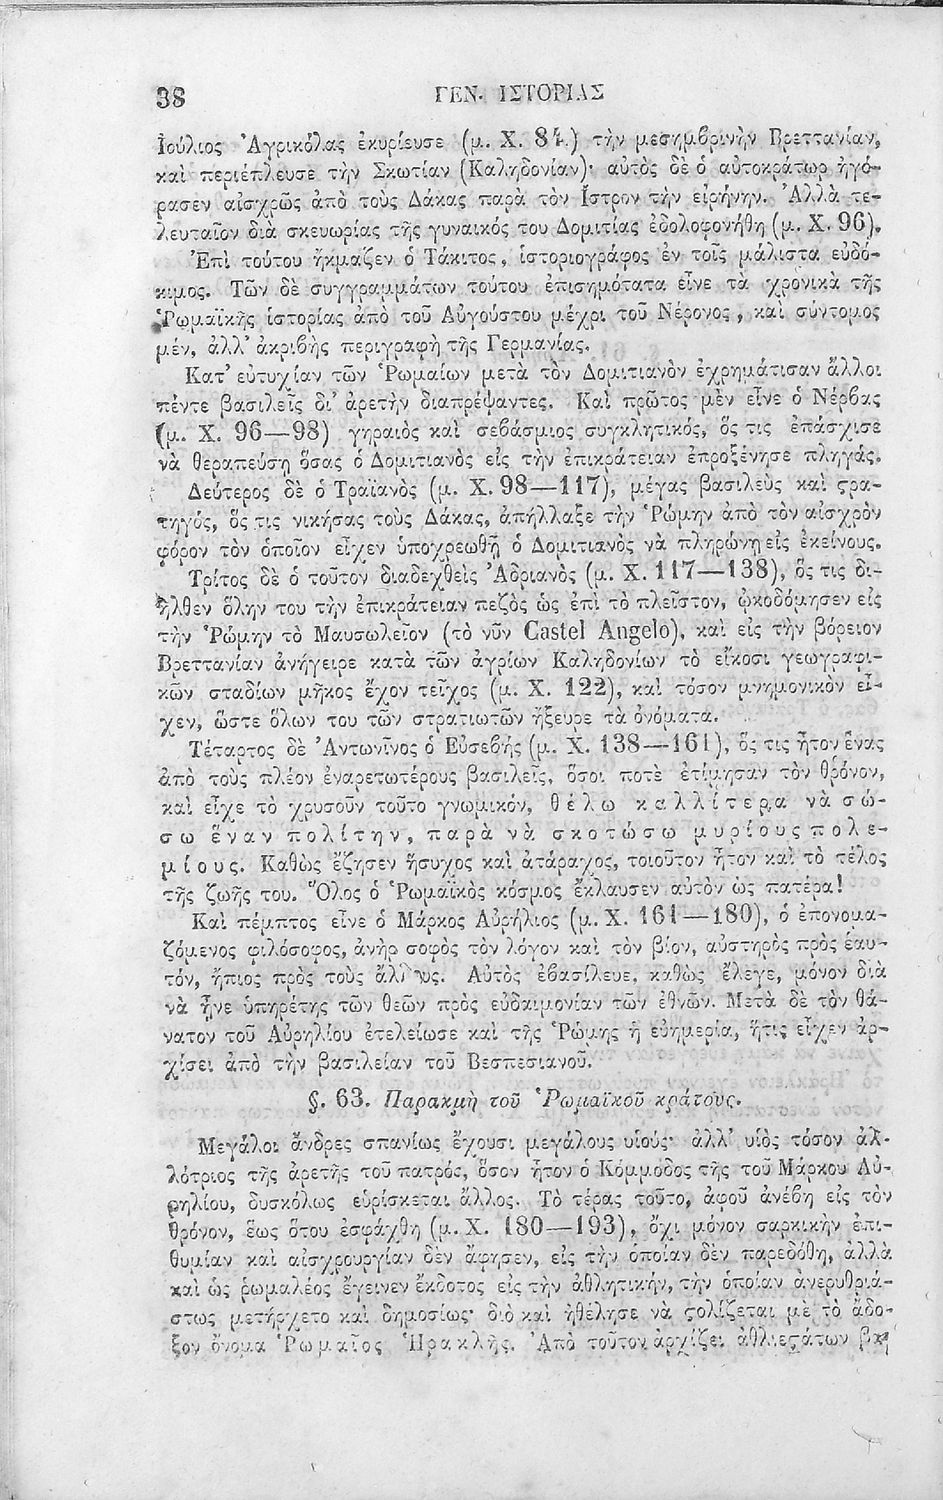 38 ΓΕΝ. ΙΣΤΟΡΙΑΣ
Ἰούλιος Ἀγρικόλας ἐκυρίευσε (μ. Χ. 84.) τὴν μεσημβρινὴν Βρεττανίαν,
καὶ περιέπλευσε τὴν Σκωτίαν (Καληδονίαν)· αὐτὸς δὲ ὁ αὐτοκράτωρ ἠγό-
ρασεν αἰσχρῶς ἀπὸ τοὺς Δάκας παρὰ τὸν Ἴστρον τὴν εἰρήνην. Ἀλλὰ τε-
λευταῖον διὰ σκευωρίας τῆς γυναικός του Δομιτίας ἐδολοφονήθη (μ. Χ. 96).
Ἐπὶ τούτου ἤκμαζεν ὁ Τάκιτος, ἱστοριογράφος ἐν τοῖς μάλιστα εὐδό-
κιμος. Τῶν δὲ συγγραμμάτων τούτου ἐπισημότατα εἶνε τὰ χρονικὰ τῆς
Ῥωμαϊκῆς ἱστορίας ἀπὸ τοῦ Αὐγούστου μέχρι τοῦ Νέρονος, καὶ σύντομος
μέν, ἀλλ' ἀκριβὴς περιγραφὴ τῆς Γερμανίας.
Κατ' εὐτυχίαν τῶν Ῥωμαίων μετὰ τὸν Δομιτιανὸν ἐχρημάτισαν ἄλλοι
πέντε βασιλεῖς δι' ἀρετὴν διαπρέψαντες. Καὶ πρῶτος μὲν εἶνε ὁ Νέρβας
(μ. Χ. 96—98) γηραιὸς καὶ σεβάσμιος συγκλητικός, ὅς τις ἐπάσχισε
νὰ θεραπεύσῃ ὅσας ὁ Δομιτιανὸς εἰς τὴν ἐπικράτειαν ἐπροξένησε πληγάς.
Δεύτερος δὲ ὁ Τραϊανὸς (μ. Χ. 98—117), μέγας βασιλεὺς καὶ ϛρα-
τηγός, ὅς τις νικήσας τοὺς Δάκας, ἀπήλλαξε τὴν Ῥώμην ἀπὸ τὸν αἰσχρὸν
φόρον τὸν ὁποῖον εἶχεν ὑποχρεωθῆ ὁ Δομιτιανὸς νὰ πληρώνῃ εἰς ἐκείνους.
Τρίτος δὲ ὁ τοῦτον διαδεχθεὶς Ἀδριανὸς (μ. Χ. 117—138), ὅς τις δι-
ῆλθεν ὅλην του τὴν ἐπικράτειαν πεζὸς ὡς ἐπὶ τὸ πλεῖστον, ᾠκοδόμησεν εἰς
τὴν Ῥώμην τὸ Μαυσωλεῖον (τὸ νῦν Castel Angelo), καὶ εἰς τὴν βόρειον
Βρεττανίαν ἀνήγειρε κατὰ τῶν ἀγρίων Καληδονίων τὸ εἴκοσι γεωγραφι-
κῶν σταδίων μῆκος ἔχον τεῖχος (μ. Χ. 122), καὶ τόσον μνημονικὸν εἶ-
χεν, ὥστε ὅλων του τῶν στρατιωτῶν ἤξευρε τὰ ὀνόματα.
Τέταρτος δὲ Ἀντωνῖνος ὁ Εὐσεβὴς (μ. Χ. 138—161), ὅς τις ἦτον ἕνας
ἀπὸ τοὺς πλέον ἐναρετωτέρους βασιλεῖς, ὅσοι ποτὲ ἐτίμησαν τὸν θρόνον,
καὶ εἶχε τὸ χρυσοῦν τοῦτο γνωμικόν, θέλω καλλίτερα νὰ σώ-
σω ἕναν πολίτην, παρὰ νὰ σκοτώσω μυρίους πολε-
μίους. Καθὼς ἔζησεν ἥσυχος καὶ ἀτάραχος, τοιοῦτον ἦτον καὶ τὸ τέλος
τῆς ζωῆς του. Ὅλος ὁ Ῥωμαϊκὸς κόσμος ἔκλαυσεν αὐτὸν ὡς πατέρα!
Καὶ πέμπτος εἶνε ὁ Μάρκος Αὐρήλιος (μ. Χ. 161—180), ὁ ἐπονομα-
ζόμενος φιλόσοφος, ἀνὴρ σοφὸς τὸν λόγον καὶ τὸν βίον, αὐστηρὸς πρὸς ἑαυ-
τόν, ἤπιος πρὸς τοὺς ἄλλους. Αὐτὸς ἐβασίλευε, καθὼς ἔλεγε, μόνον διὰ
νὰ ᾖνε ὑπηρέτης τῶν θεῶν πρὸς εὐδαιμονίαν τῶν ἐθνῶν. Μετὰ δὲ τὸν θά-
νατον τοῦ Αὐρηλίου ἐτελείωσε καὶ τῆς Ῥώμης ἡ εὐημερία, ἥτις εἶχεν ἀρ-
χίσει ἀπὸ τὴν βασιλείαν τοῦ Βεσπεσιανοῦ.
§. 63. Παρακμὴ τοῦ Ῥωμαϊκοῦ κράτους.
Μεγάλοι ἄνδρες σπανίως ἔχουσι μεγάλους υἱούς· ἀλλ' υἱὸς τόσον ἀλ-
λότριος τῆς ἀρετῆς τοῦ πατρός, ὅσον ἦτον ὁ Κόμμοδος τῆς τοῦ Μάρκου Αὐ-
ρηλίου, δυσκόλως εὑρίσκεται ἄλλος. Τὸ τέρας τοῦτο, ἀφοῦ ἀνέβη εἰς τὸν
θρόνον, ἕως ὅτου ἐσφάχθη (μ. Χ. 180—193), ὄχι μόνον σαρκικὴν ἐπι-
θυμίαν καὶ αἰσχρουργίαν δὲν ἄφησεν, εἰς τὴν ὁποίαν δὲν παρεδόθη, ἀλλὰ
καὶ ὡς ῥωμαλέος ἔγεινεν ἔκδοτος εἰς τὴν ἀθλητικήν, τὴν ὁποίαν ἀνερυθριά-
στως μετήρχετο καὶ δημοσίως· διὸ καὶ ἠθέλησε νὰ ϛολίζεται μὲ τὸ ἄδο-
ξον ὄνομα Ῥωμαῖος Ἡρακλῆς. Ἀπὸ τοῦτον ἀρχίζει ἀθλιεϛάτων βα